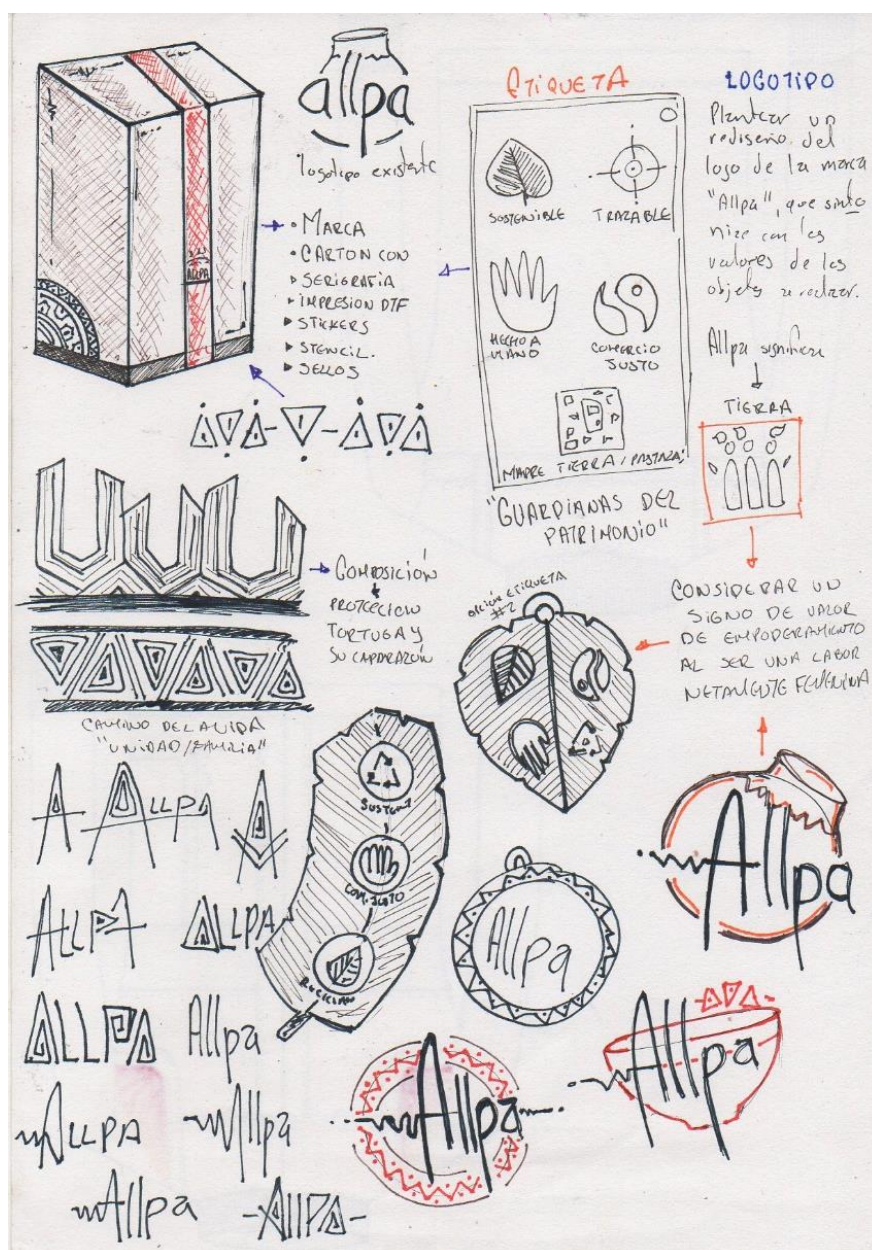 allpa
logotipo existente
• MARCA
• CARTON CON
▹ SERIGRAFIA
▸ IMPRESION DTF
▸ STICKERS
▸ STENCIL.
▸ SELLOS
ALLPA
ETIQUETA
SOSTENIBLE
TRAZABLE
HECHO A
MANO
COMERCIO
JUSTO
MADRE TIERRA / PASTAZA
"GUARDIANAS DEL
PATRIMONIO"
LOGOTIPO
Plantear un
rediseño del
logo de la marca
"Allpa", que sinto
nize con los
valores de los
objetos a realizar.
Allpa significa
TIERRA
CONSIDERAR UN
SIGNO DE VALOR
DE EMPODERAMIENTO
AL SER UNA LABOR
NETAMENTE FEMENINA
COMPOSICIÓN
PROTECCICIO
TORTUGA Y
SU CAPARAZÓN
CAMINO DE LA VIDA
"UNIDAD/FAMILIA"
OPCION ETIQUETA
#2
SUSTENT
COM. JUSTO
RECICLAN
A
ALLPA
A
ALLPA
ALLPA
ALLPA
Allpa
ALLPA
Allpa
Allpa
AllPA
Allpa
Allpa
Allpa
Allpa